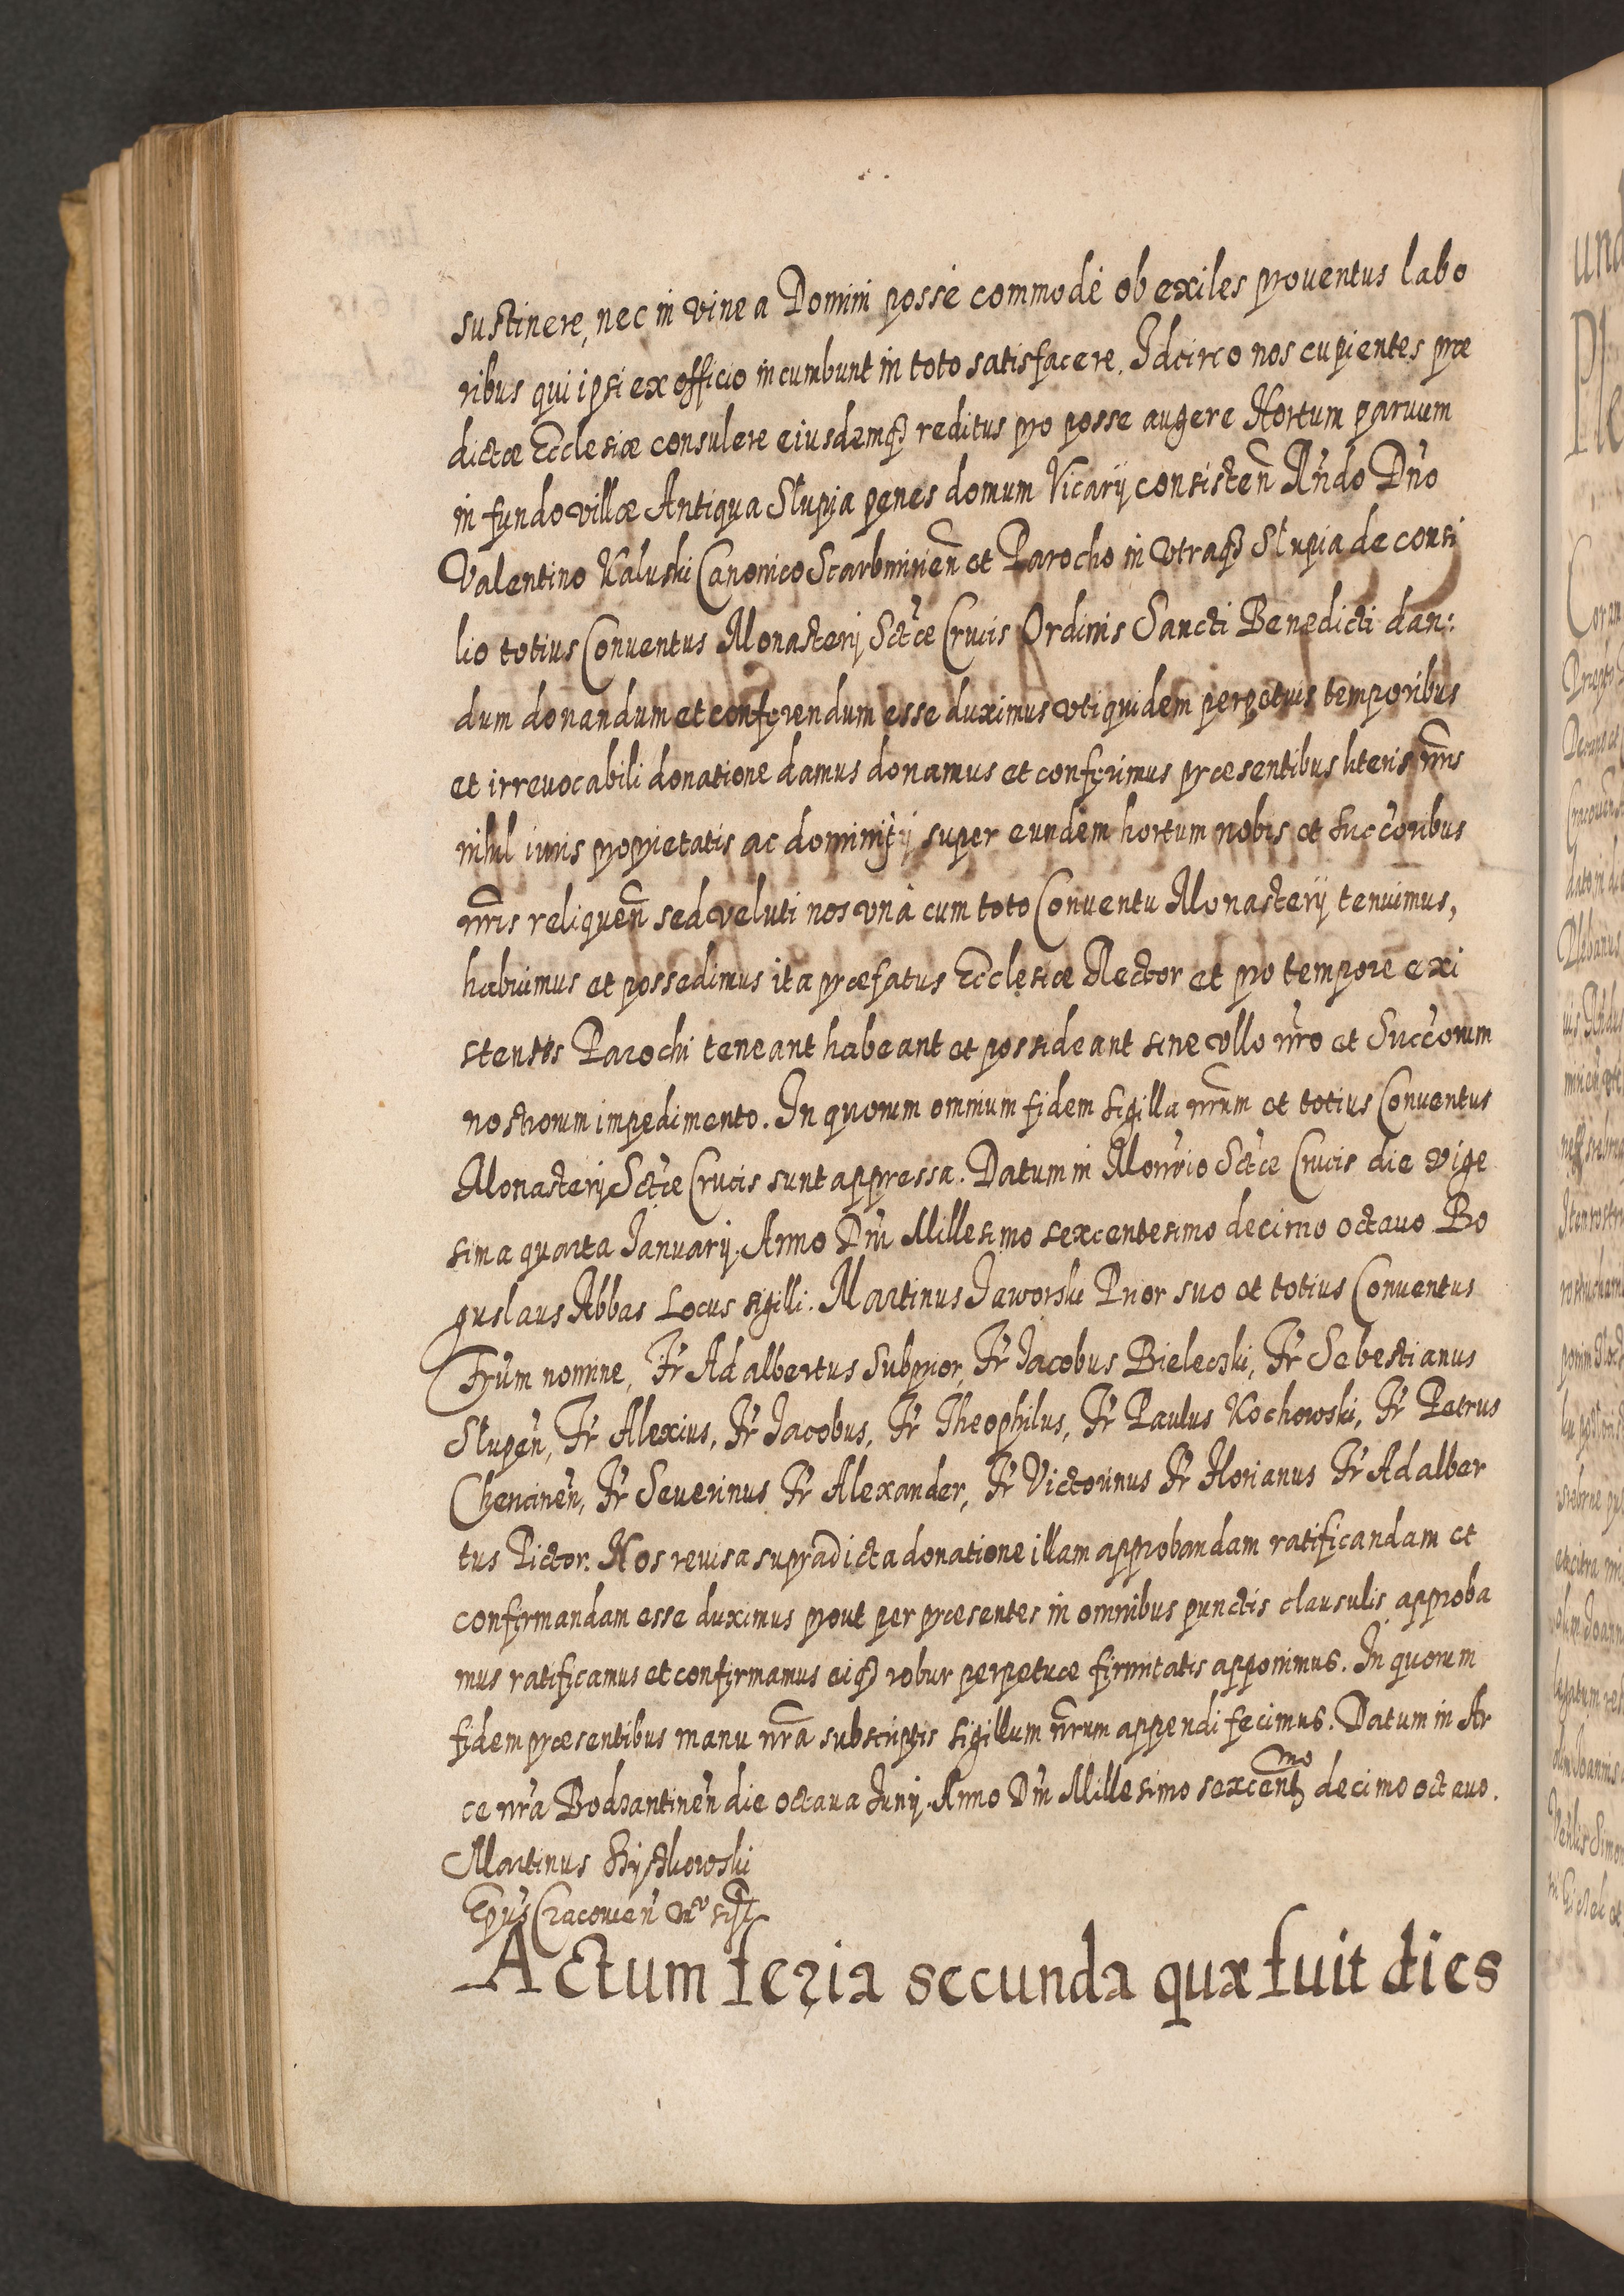 sustinere, nec in vinea Domini posse commodè ob exiles prouentus labo
ribus qui ipsi ex officio incumbunt in toto satisfacere. Idcirco nos cupientes præ
dictæ Ecclesiæ consulere eiusdemq3 reditus pro posse augere Hortum paruum
in fundo villæ Antiqua Słupia penes domum Vicarij consisten̄ Rn̄do Dn̄o
Valentino Kaluski Canonico Scarbimirien̄ et Parocho in vtraq3 Słupia de consi
lio totius Conuentus Monasterij Sctæ Crucis Ordinis Sancti Benedicti dan:
dum donandum et conferendum esse duximus vti quidem perpetuis temporibus
et irreuocabili donatione damus donamus et conferimus præsentibus literis nr̄is
nihil iuris proprietatis ac dominij super eundem hortum nobis et Succoribus
nr̄is reliquen̄ sed veluti nos vnà cum toto Conuentu Monasterij tenuimus,
habuimus et possedimus ita præfatus Ecclesiæ Rector et pro tempore exi
stentes Parochi teneant habeant et possideant sine vllo nr̄o et Succorum
nostrorum impedimento. In quorum omnium fidem sigilla nr̄um et totius Conuentus
Monasterij Sctæ Crucis sunt appressa. Datum in Mon̄rio Sctæ Crucis die vige
sima quarta Ianuarij Anno Dn̄i Millesimo sexcentesimo decimo octauo Bo
guslaus Abbas Locus sigilli. Martinus Jaworski Prior suo et totius Conuentus
Fr̄um nomine, Fr̄ Adalbertus Subprior, Fr̄ Iacobus Bielecski, Fr̄ Sebestianus
Słupen̄, Fr̄ Alexius, Fr̄ Iacobus, Fr̄ Theophilus, Fr̄ Paulus Kochowski, Fr̄ Petrus
Chencinen̄, Fr̄ Seuerinus Fr̄ Alexander, Fr̄ Victorinus Fr̄ Florianus Fr̄ Adalber
tus Pictor. Nos reuisa supradicta donatione illam approbandam ratificandam et
confirmandam esse duximus prout per præsentes in omnibus punctis clausulis approba
mus ratificamus et confirmamus eiq3 robur perpetuæ firmitatis apponimus. In quorum
fidem præsentibus manu nr̄a subscriptis sigillum nr̄um appendi fecimus. Datum in Ar
ce nr̄a Bodzantinen̄ die octaua Iunij. Anno Dn̄i Millesimo sexcent3mo decimo octauo.
Martinus Szyszkowski
Ep̄us Cracouien̄
Actum feria secunda quæ fuit dies